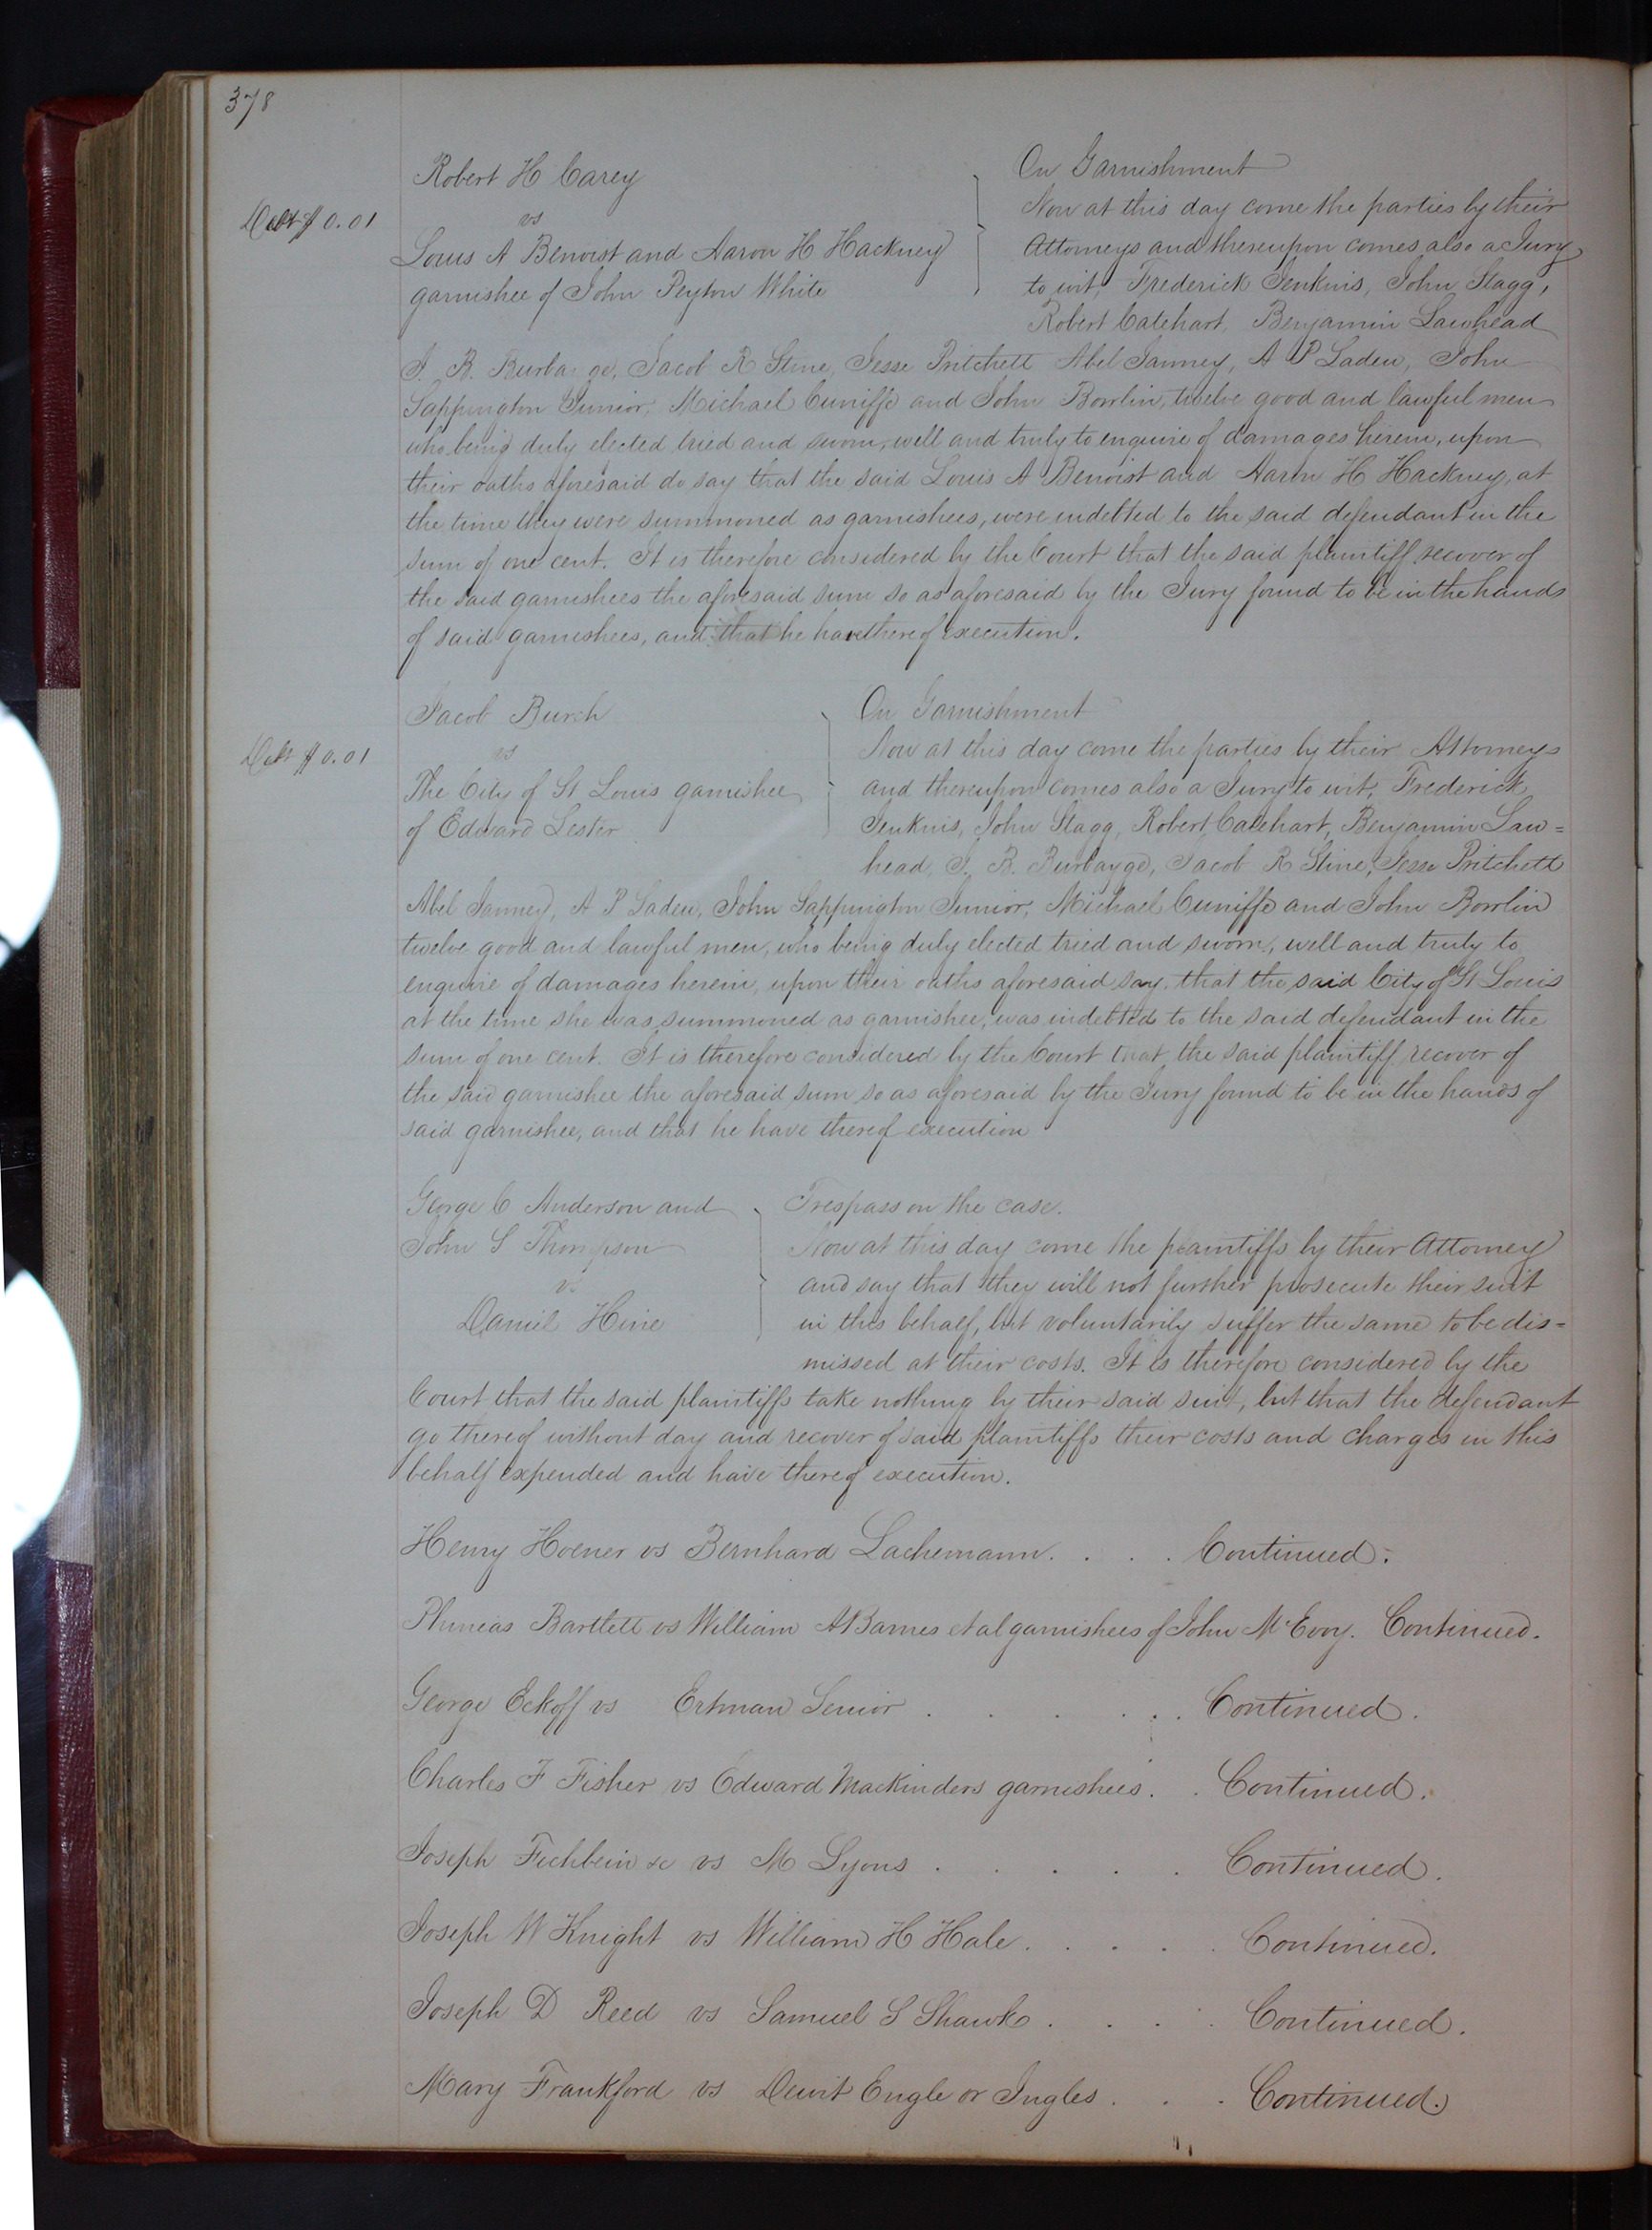 378
Robert H Carey
On Garnishment
Debt $0.01
vs
Now at this day come the parties by their
Louis A Benoist and Aaron H Hackney
Attorneys and thereupon comes also a Jury
garnishee of John Peyton White
to wit, Frederick Jenkins, John Stagg,
Robert Catehart, Benjamin Lawhead
J. B. Burbayge, Jacob R Stine, Jesse Pritchett Abel Janney, A P Ladew, John
Sappington Junior, Michael Cuniffe and John Bowlin, twelve good and lawful men
who being duly elected tried and sworn, well and truly to enquire of damages herein, upon
their oaths aforesaid do say that the said Louis A Benoist and Aaron H Hackney, at
the time they were summoned as garnishees, were indebted to the said defendant in the
sum of one cent. It is therefore considered by the Court that the said plaintiff recover of
the said garnishees the aforesaid sum so as aforesaid by the Jury found to be in the hands
of said garnishees, and that he have thereof execution.
Jacob Burch
On Garnishment
Debt $0.01
vs
Now at this day come the parties by their Attorneys
The City of St Louis garnishee
and thereupon comes also a Jury to wit, Frederick
of Edward Lester
Jenkins, John Stagg, Robert Catehart, Benjamin Law=
head, J. B. Burbayge, Jacob R Stine, Jesse Pritchett
Abel Janney, A P Ladew, John Sappington Junior, Michael Cuniffe and John Bowlin
twelve good and lawful men, who being duly elected tried and sworn, well and truly to
enquire of damages herein, upon their oaths aforesaid say, that the said City of St Louis
at the time she was summoned as garnishee, was indebted to the said defendant in the
sum of one cent. It is therefore considered by the Court that the said plaintiff recover of
the said garnishee the aforesaid sum so as aforesaid by the Jury found to be in the hands of
said garnishee, and that he have thereof execution
George C Anderson and
Trespass on the case.
John S Thompson
Now at this day come the plaintiffs by their Attorney
vs
and say that they will not further prosecute their suit
Daniel Hine
in this behalf, but voluntarily suffer the same to be dis=
missed at their costs. It is therefore considered by the
Court that the said plaintiffs take nothing by their said suit, but that the defendant
go thereof without day and recover of said plaintiffs their costs and charges in this
behalf expended and have thereof execution.
Henry Hoener vs Bernhard Lachemann. . . . Continued.
Phineas Bartlett vs William A Barnes et al garnishees of John McEvoy. Continued.
George Eckoff vs Ertman Senior . . . . . Continued.
Charles F Fisher vs Edward Mackinders garnishees. . Continued.
Joseph Fichbein &c vs M Lyons . . . . . Continued.
Joseph W Knight vs William H Hale. . . . . Continued.
Joseph D Reed vs Samuel S Shawk . . . . Continued.
Mary Frankford vs Dewit Engle or Ingles . . . Continued.